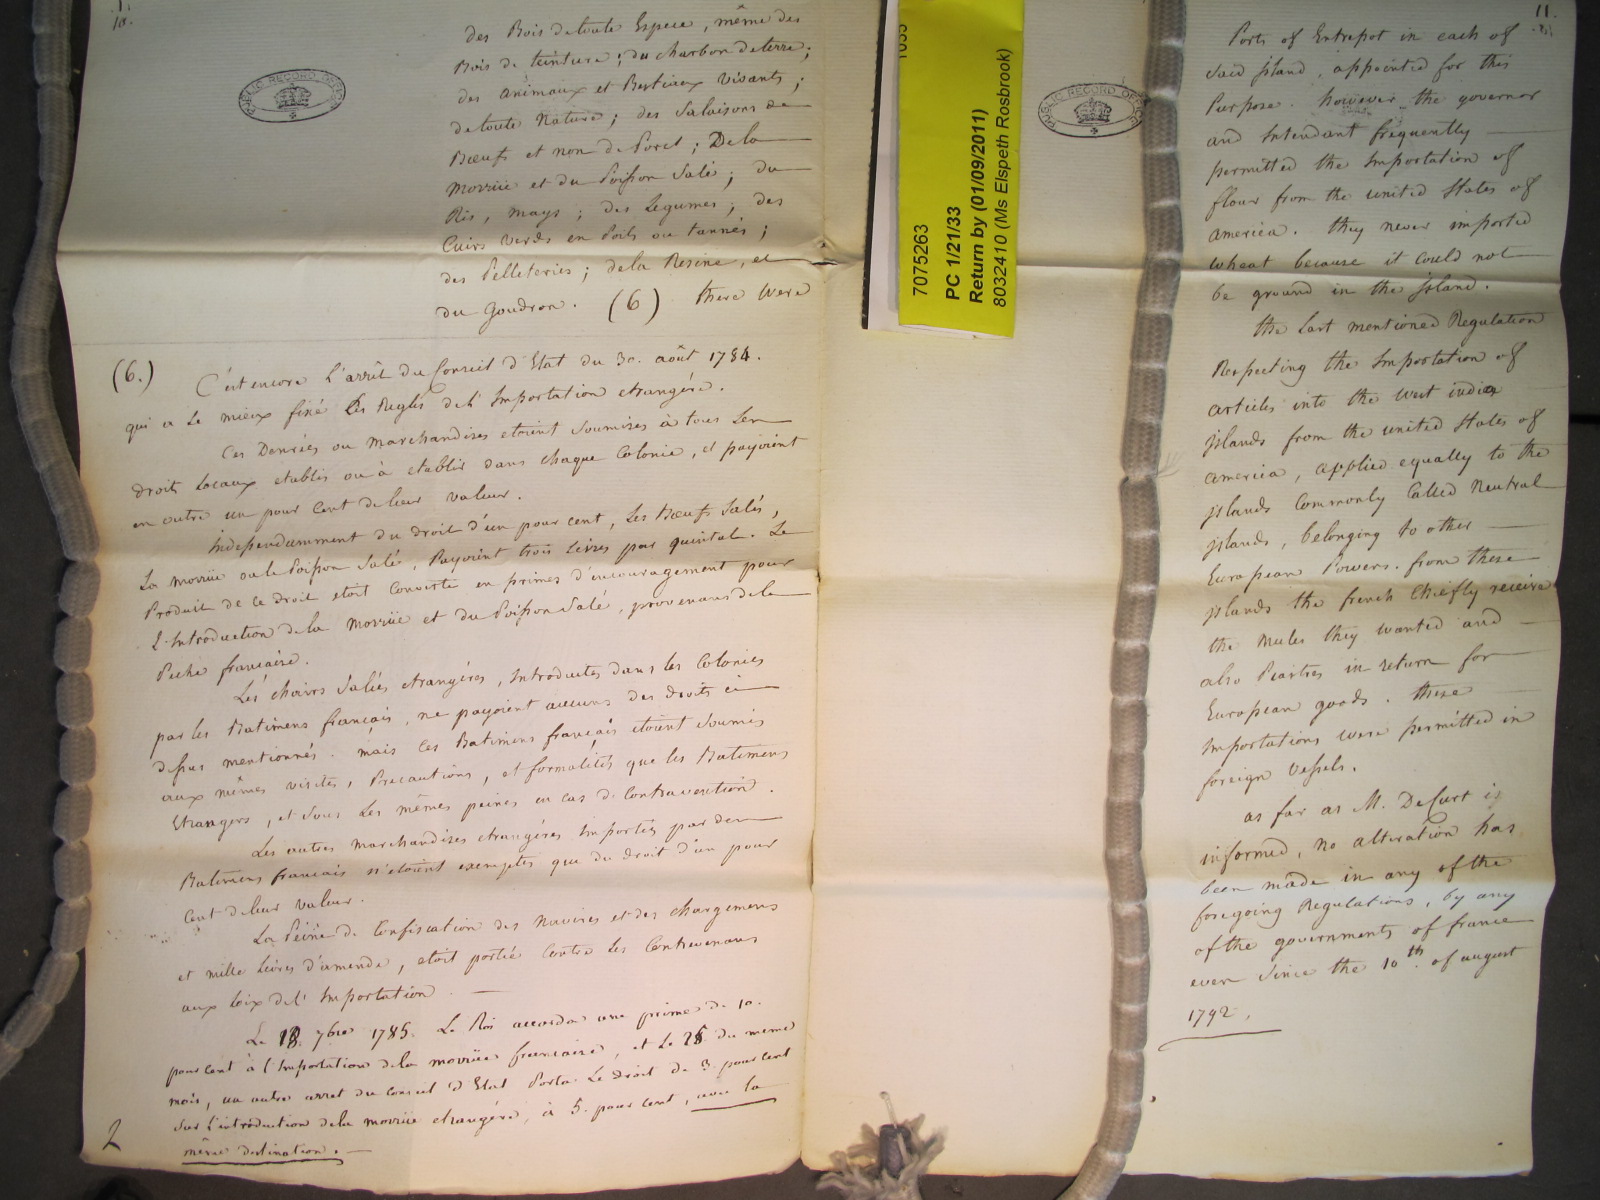 10.
des Bois de toute Espece, même des
Bois de teinture; du charbon de terre;
des animaux et Bestiaux vivants;
de toute Nature; des Salaisons de
Boeufs et non de Porcs; De la
Morrüe et du Poisson Salé; du
Ris, mays; des Legumes; des
Cuirs verds en Poils ou tannés;
des Pelleteries; de la Resine, et
du Goudron. (6) there were
(6.) C'est encore L'arrêt du Conseil d'Etat du 30. août 1784.
qui a Le mieux fixé Les Regles de L'Importation etrangére.
Ces Denrées ou marchandises etoient Soumises à tous Les
droits Locaux etablis ou à etablir dans chaque Colonie, et payoient
en outre un pour Cent de leur valeur.
Independamment du droit d'un pour cent, Les Boeufs Salés,
La morrüe ou le Poisson Salé, Payoient trois Livres par quintal. Le
Produit de ce droit etoit Converti en primes d'encouragement pour
L'Introduction de la Morrüe et du Poisson Salé, provenans de la
Peche francaise.
Les chairs Salées etrangéres, Introduites dans les Colonies
par les Batimens francais, ne payoient aucuns des droits ci
dessus mentionnés. mais Ces Batimens francais etoient Soumis
aux mêmes visites, Precautions, et formalités que les Batimens
Etrangers, et Sous Les mêmes peines en cas de Contravention.
Les autres marchandises etrangéres Importées par des
Batimens francais n'etoient exemptes que du droit d'un pour
Cent de leur valeur.
La Peine de Confiscation des Navires et des chargemens
et mille Livres d'amende, etoit portée Contre Les Contrevenans
aux Loix de L'Importation.
Le 18. 7bre 1785. Le Roi accorda une prime de 10.
pour cent à l'Importation de la morrüe francaise, et Le 25 du meme
mois, un autre arret du conseil d'Etat Porta Le Droit de 3. pour cent
Sur L'introduction de la morrüe etrangére, à 5. pour cent, avec la
même destination.
2
PUBLIC RECORD OFFICE
7075263
PC 1/21/33
Return by (01/09/2011)
8032410 (Ms Elspeth Rosbrook)
PUBLIC RECORD OFFICE
11.
Ports of Entrepot in each of
Said Island, appointed for this
Purpose. however the governor
and Intendant frequently
permitted the Importation of
flour from the united States of
america. they never imported
wheat because it could not
be ground in the Island.
the Last mentioned Regulation
Respecting the Importation of
articles into the West india
Islands from the united States of
america, applied equally to the
Islands Commonly Called Neutral
Islands, belonging to other
European Powers. from these
Islands the french Chiefly receive
the Mules they wanted and
also Piastres in return for
European goods. these
Importations were permitted in
foreign Vessels.
as far as M. Decurt is
informed, no alteration has
been made in any of the
foregoing Regulations, by any
of the governments of france
ever Since the 10th. of august
1792.